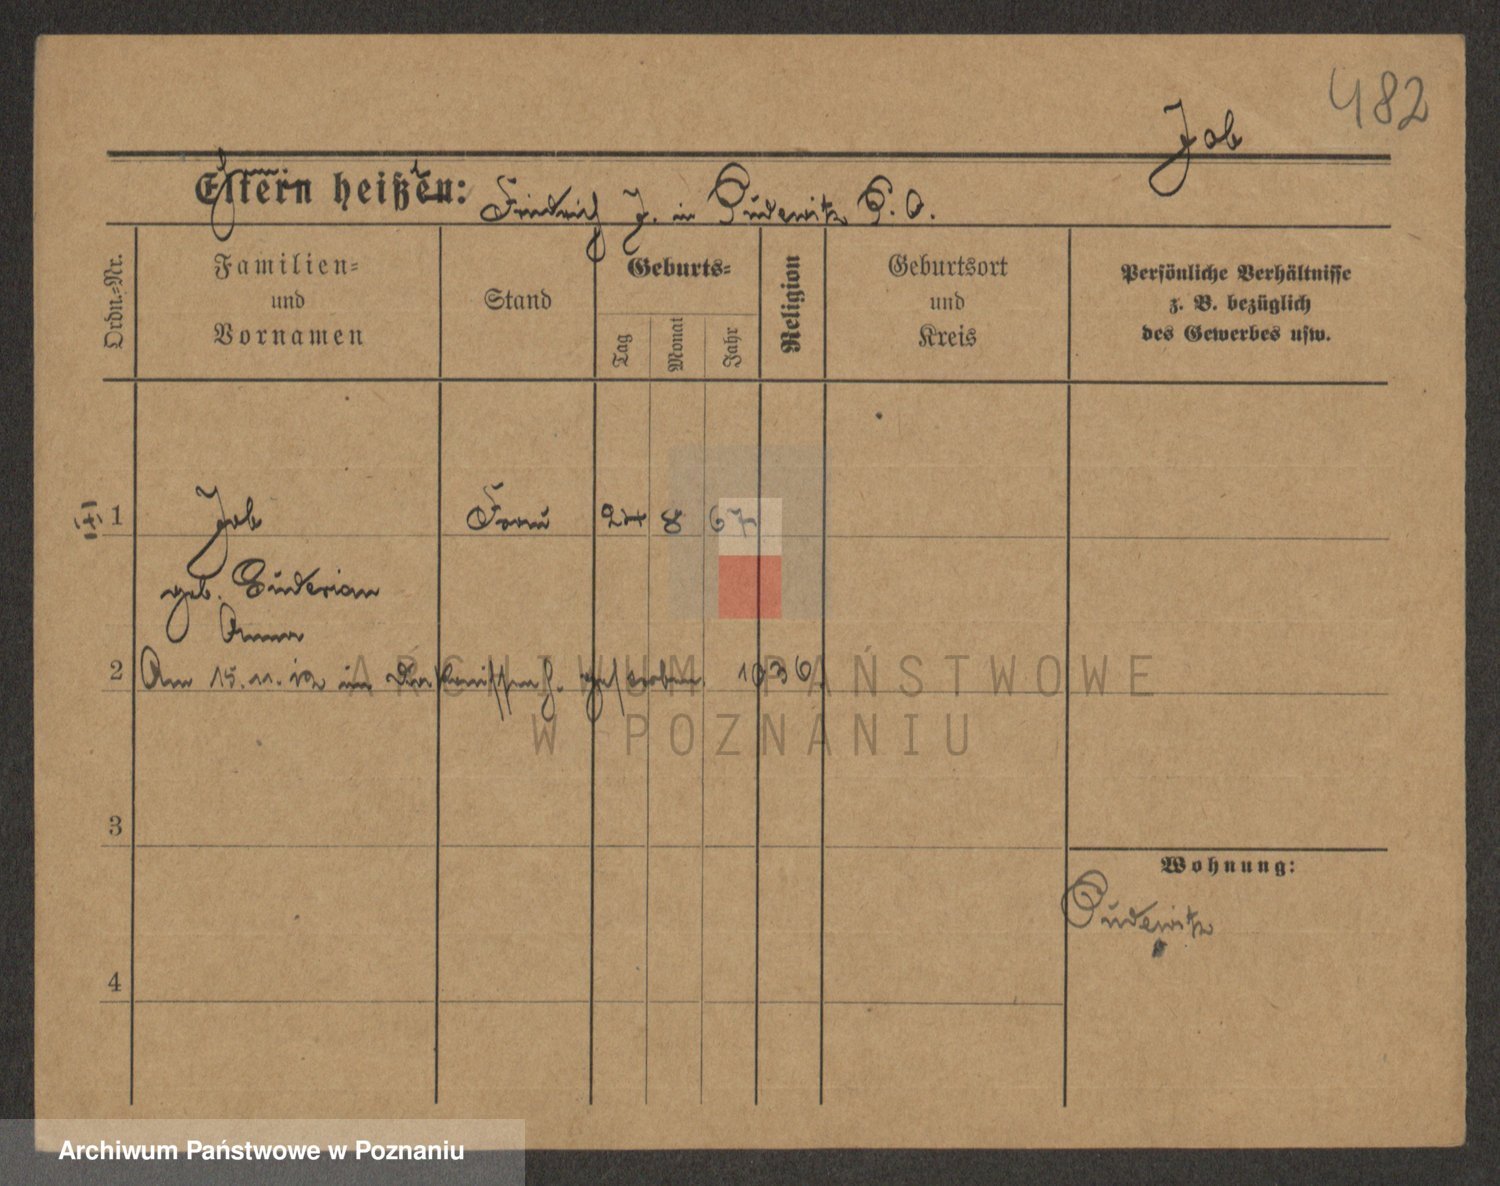 482
Job
Eltern heißen: Friedrich J. in Pudewitz P. O.
Ordn.-Nr.
Familien-
und
Vornamen
Stand
Geburts-
Tag
Monat
Jahr
Religion
Geburtsort
und
Kreis
Persönliche Verhältnisse
z. B. bezüglich
des Gewerbes usw.
1 Job Frau 24 8 67
geb. Guderian
Anna
2 Am 15.11.12 im gestorben. 1036
3
Wohnung:
Pudewitz
4
ARCHIWUM PAŃSTWOWE
W POZNANIU
Archiwum Państwowe w Poznaniu